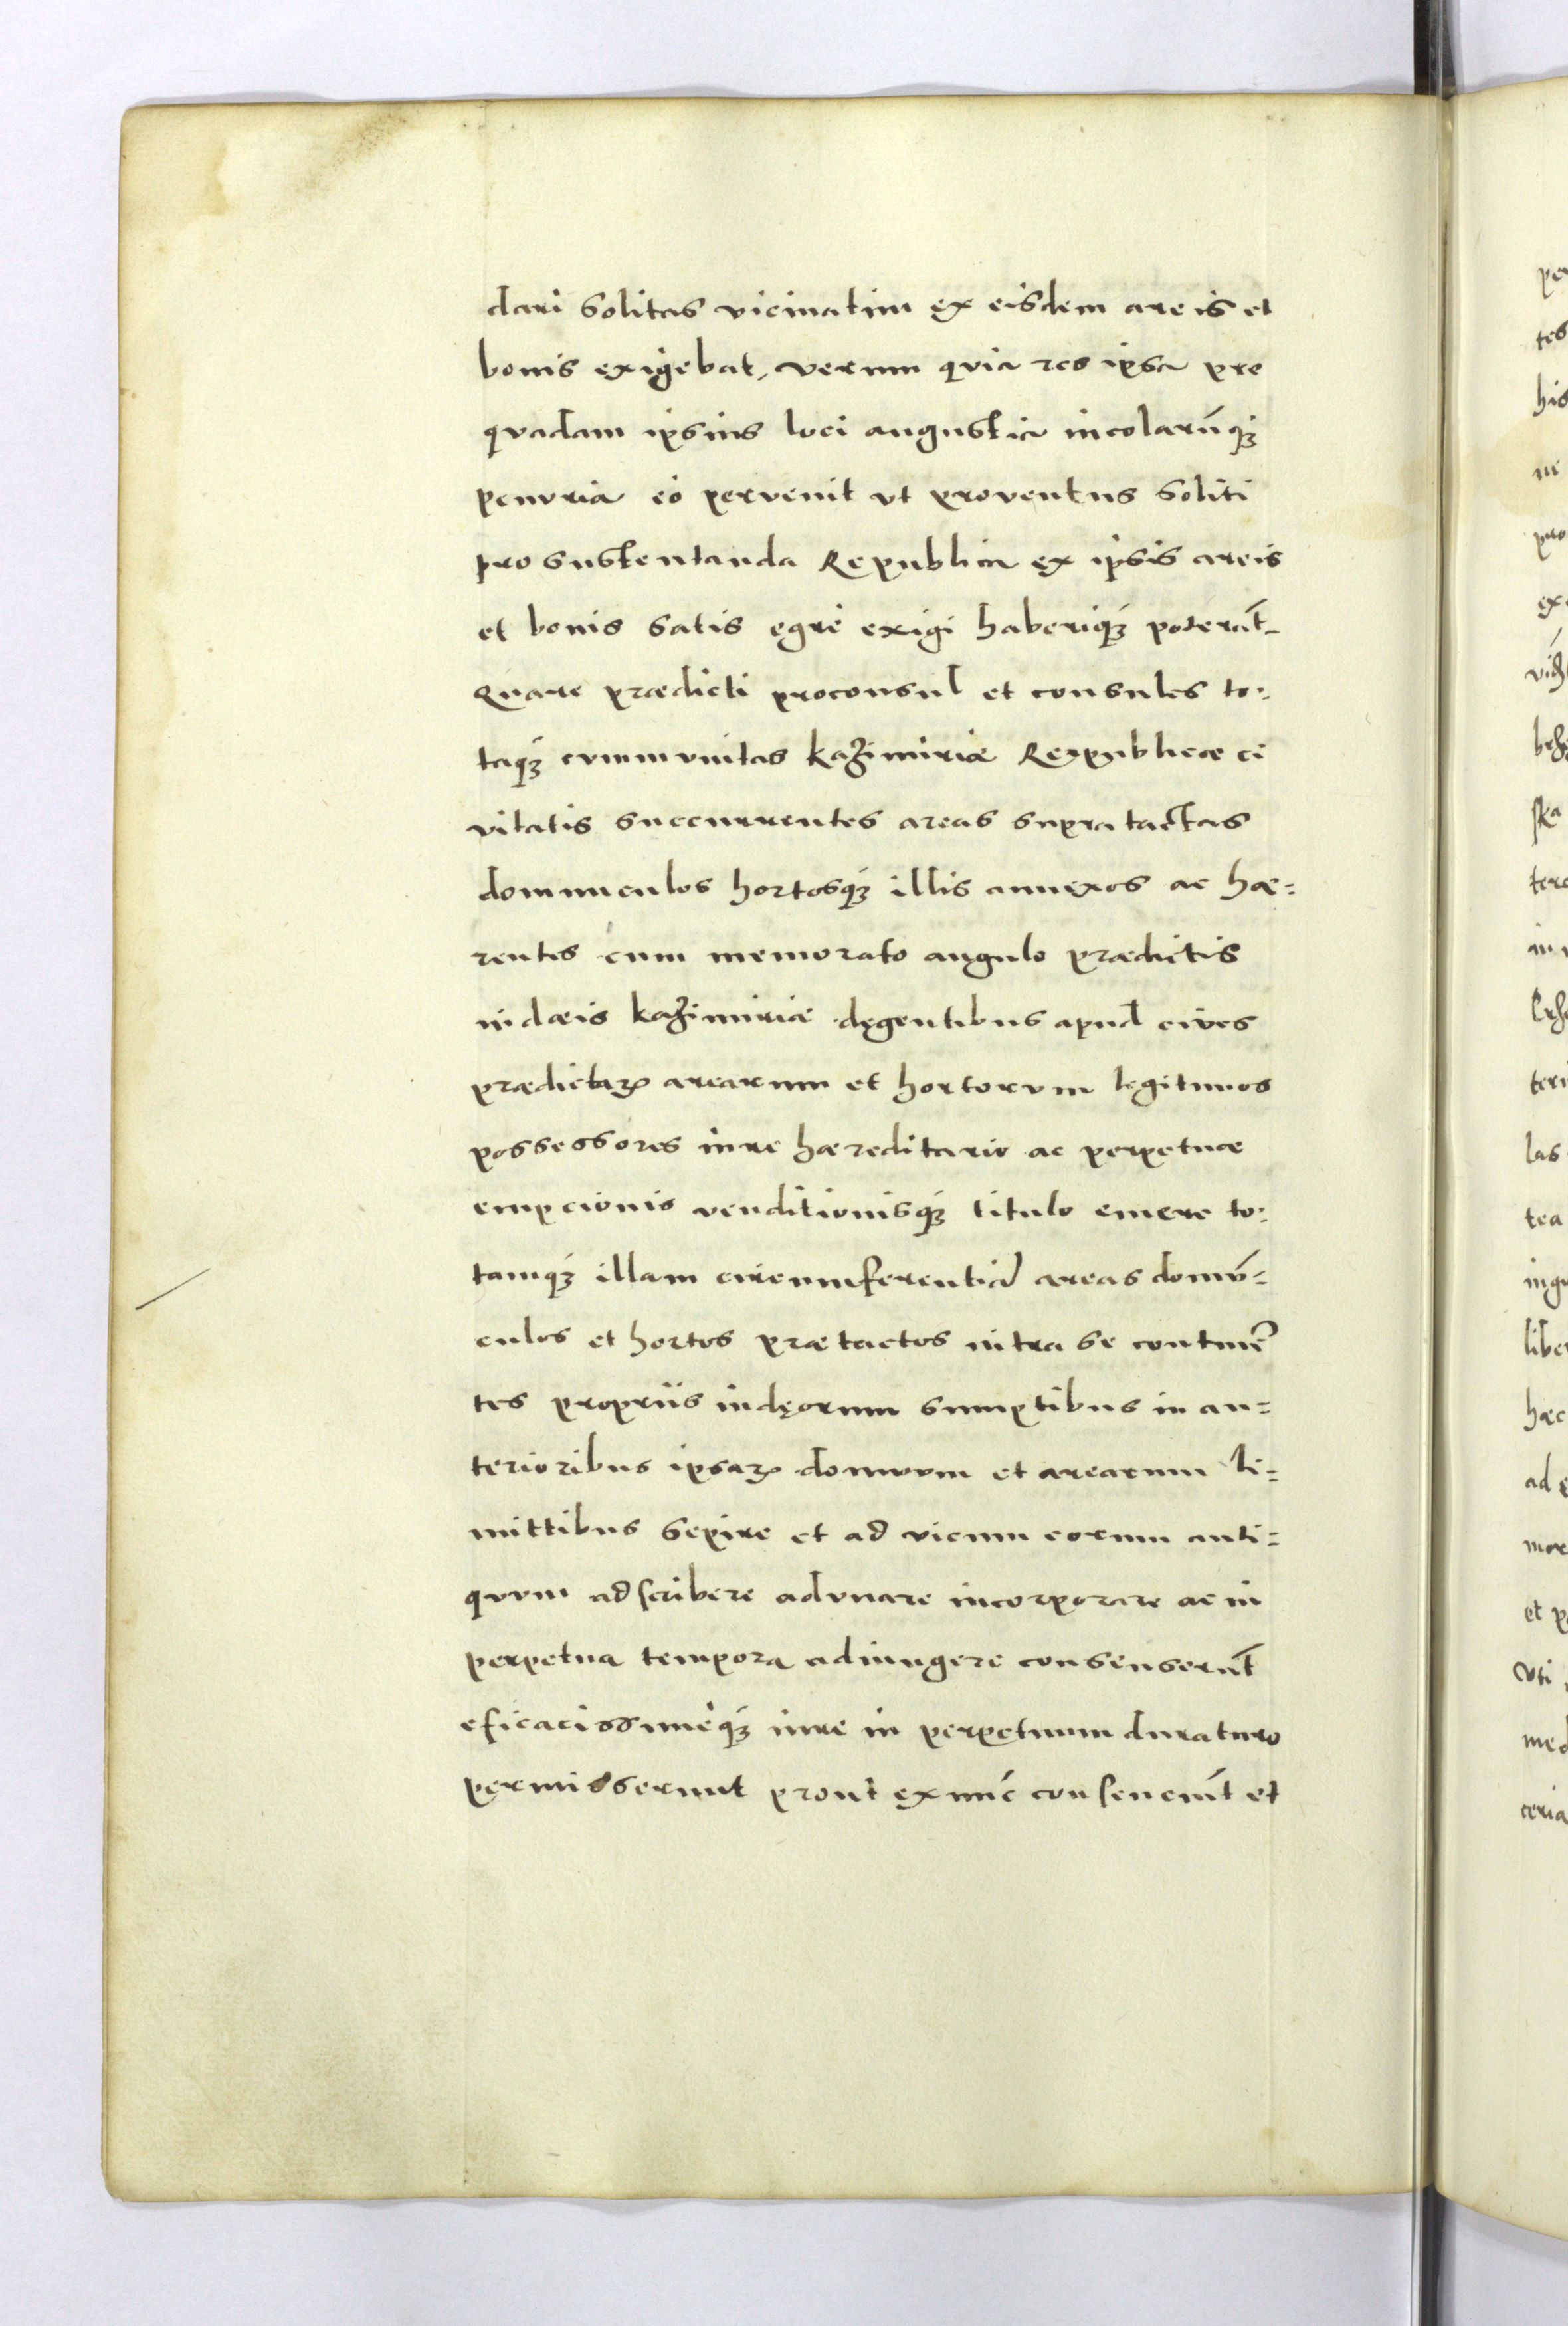 dari solitas vicinatim ex eisdem areis et
bonis exigebat, verum quia res ipsa pre
quadam ipsius loci angustia incolarūq́ꝫ
penuria eò pervenit vt proventus soliti
pro sustentanda Republica ex ipsis areis
et bonis satis egrè exigi haberiq́ꝫ poterāt_
Quare prædicti proconsul et consules to-
taq́ꝫ communitas kaȝimiriæ Reipublicæ ci
vitatis succurrentes areas supra tactas
domunculos hortosq́ꝫ illis annexos ac hæ=
rentes cum memorato angulo prædictis
iudæis kaȝimiriæ degentibus apud cives
prædictaꝝ arearum et hortorum legitimos
possessores iure hæreditario ac perpetuæ
empcionis venditionisq́ꝫ titulo emere to-
tamq́ꝫ illam circumferentiā areas domū=
culos et hortos prætactos intra se continē
tes propriis iudęorum sumptibus in an=
terioribus ipsaꝝ domuum et arearum li=
mittibus sepire et ad vicum eorum anti=
quum adscribere adunare incorporare ac in
perpetua tempora adiungere consenserūt
eficacissimeq́ꝫ iure in perpetuum duraturo
permisserunt prout ex nūc consenciūt et
pe
tes
his
in
pro
ex
ska
terc
teri
las
tea
liber
hæc
ad
mor
et p
Vti
med
ceria